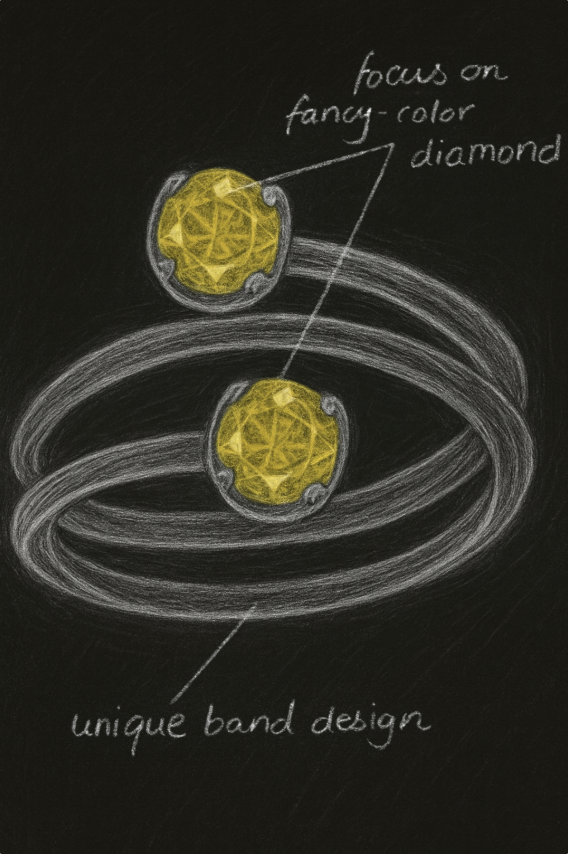 focus on
fancy-color
diamond
unique band design